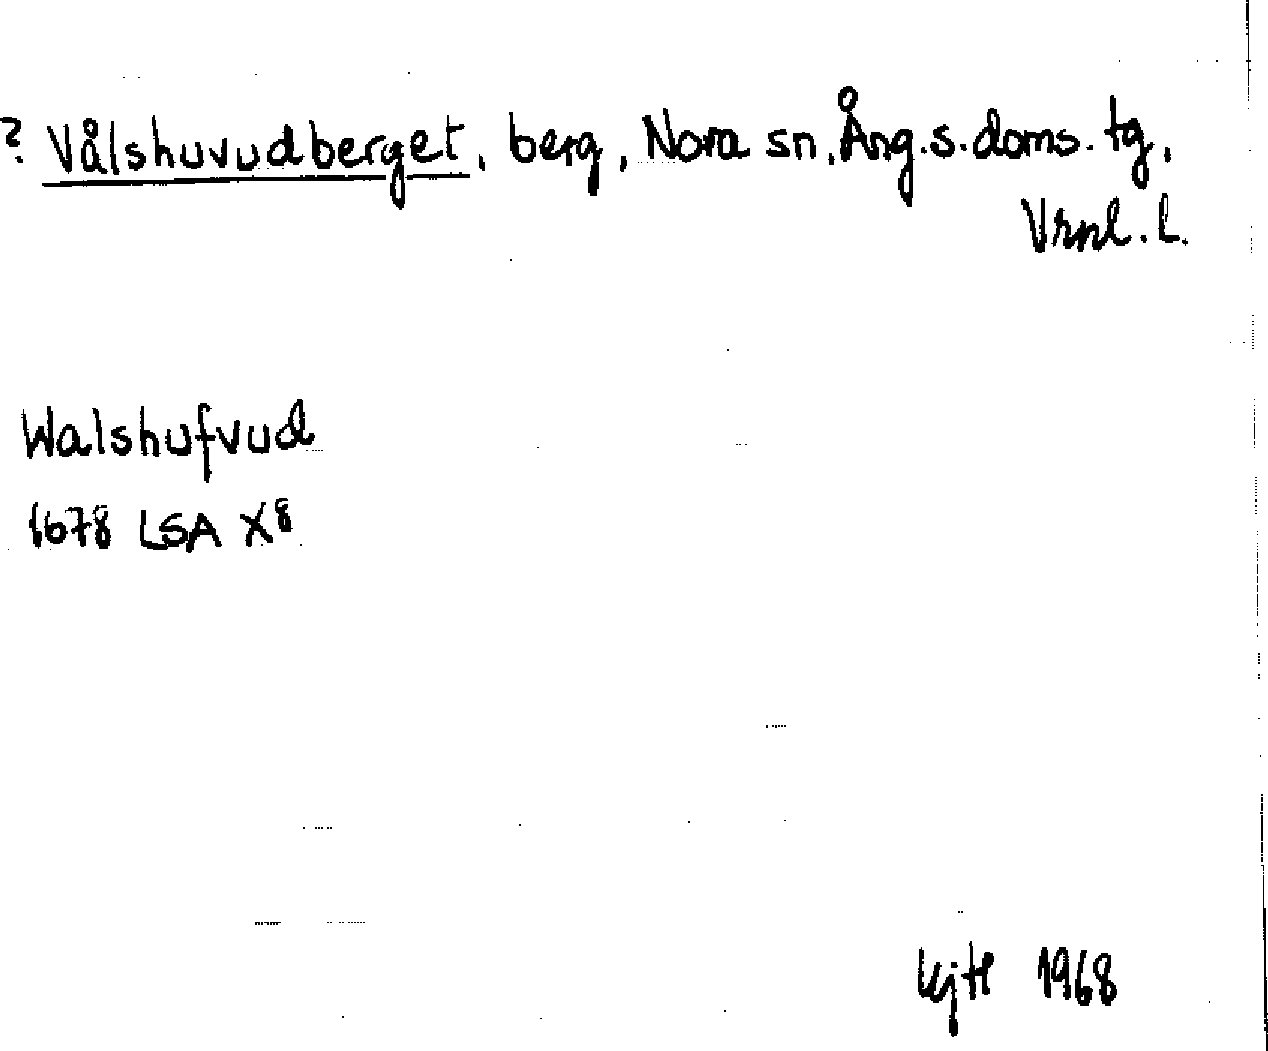 ? Vålshuvudberget, berg, Nora sn, Ång.s.doms.tg,
Vrnl. l.
Walshufvud
1678 LSA X8
1968